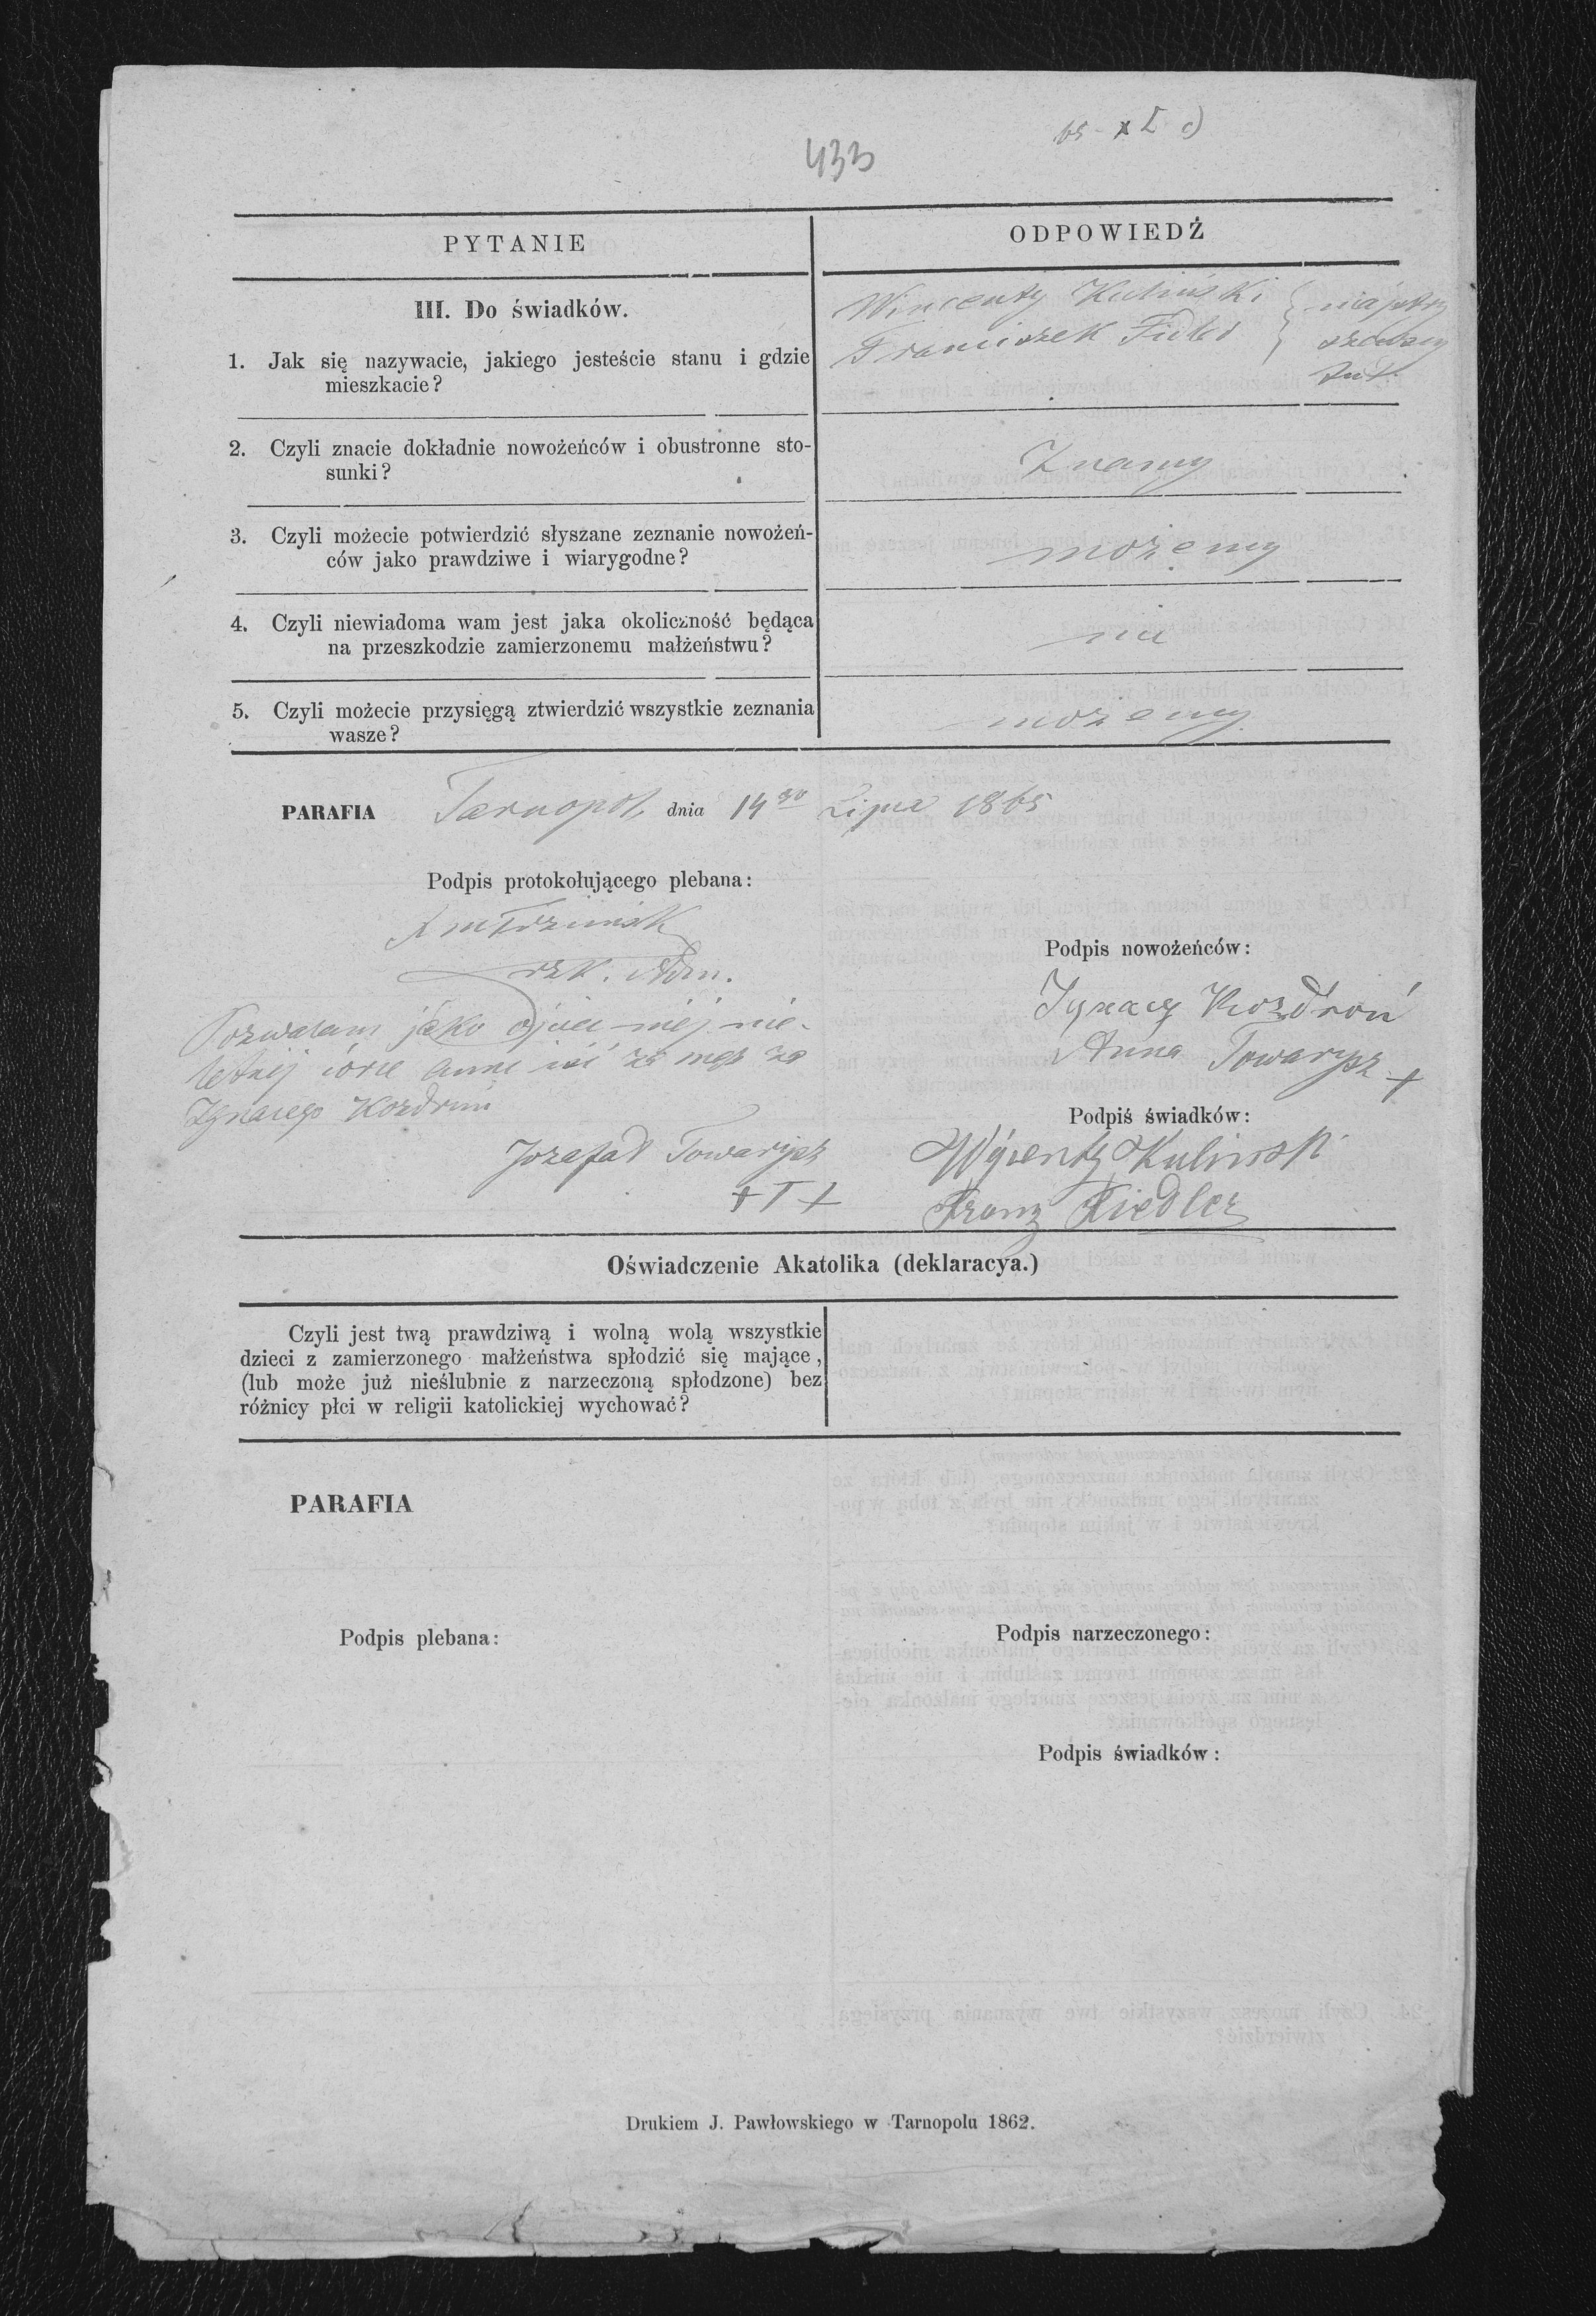 433
PYTANIE
ODPOWIEDŹ
III. Do świadków.
1. Jak się nazywacie, jakiego jesteście stanu i gdzie
mieszkacie?
Wincenty Kuliński
Franciszek
2. Czyli znacie dokładnie nowożeńców i obustronne sto-
sunki?
Znamy
3. Czyli możecie potwierdzić słyszane zeznanie nowożeń-
ców jako prawdziwe i wiarygodne?
możemy
4. Czyli niewiadoma wam jest jaka okoliczność będąca
na przeszkodzie zamierzonemu małżeństwu?
nie
5. Czyli możecie przysięgą ztwierdzić wszystkie zeznania
wasze?
możemy
PARAFIA Tarnopol, dnia 14go Lipca 1865
Podpis protokołującego plebana:
Podpis nowożeńców:
Ignacy Kozdroń
Anna Towarysz +
Pozwalam jako ojciec méj nie-
letniéj córce Annie iść za mąż za
Ignacego Kozdroń
Jozafat Towarysz
+ T +
Podpiś świadków:
Kulinski
Franz Fiedler
Oświadczenie Akatolika (deklaracya.)
Czyli jest twą prawdziwą i wolną wolą wszystkie
dzieci z zamierzonego małżeństwa spłodzić się mające,
(lub może już nieślubnie z narzeczoną spłodzone) bez
różnicy płci w religii katolickiej wychować?
PARAFIA
Podpis plebana:
Podpis narzeczonego:
Podpis świadków:
Drukiem J. Pawłowskiego w Tarnopolu 1862.